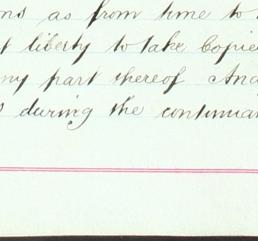 ns as from time to
t liberty to take Copie
ny part thereof And
s during the continuan